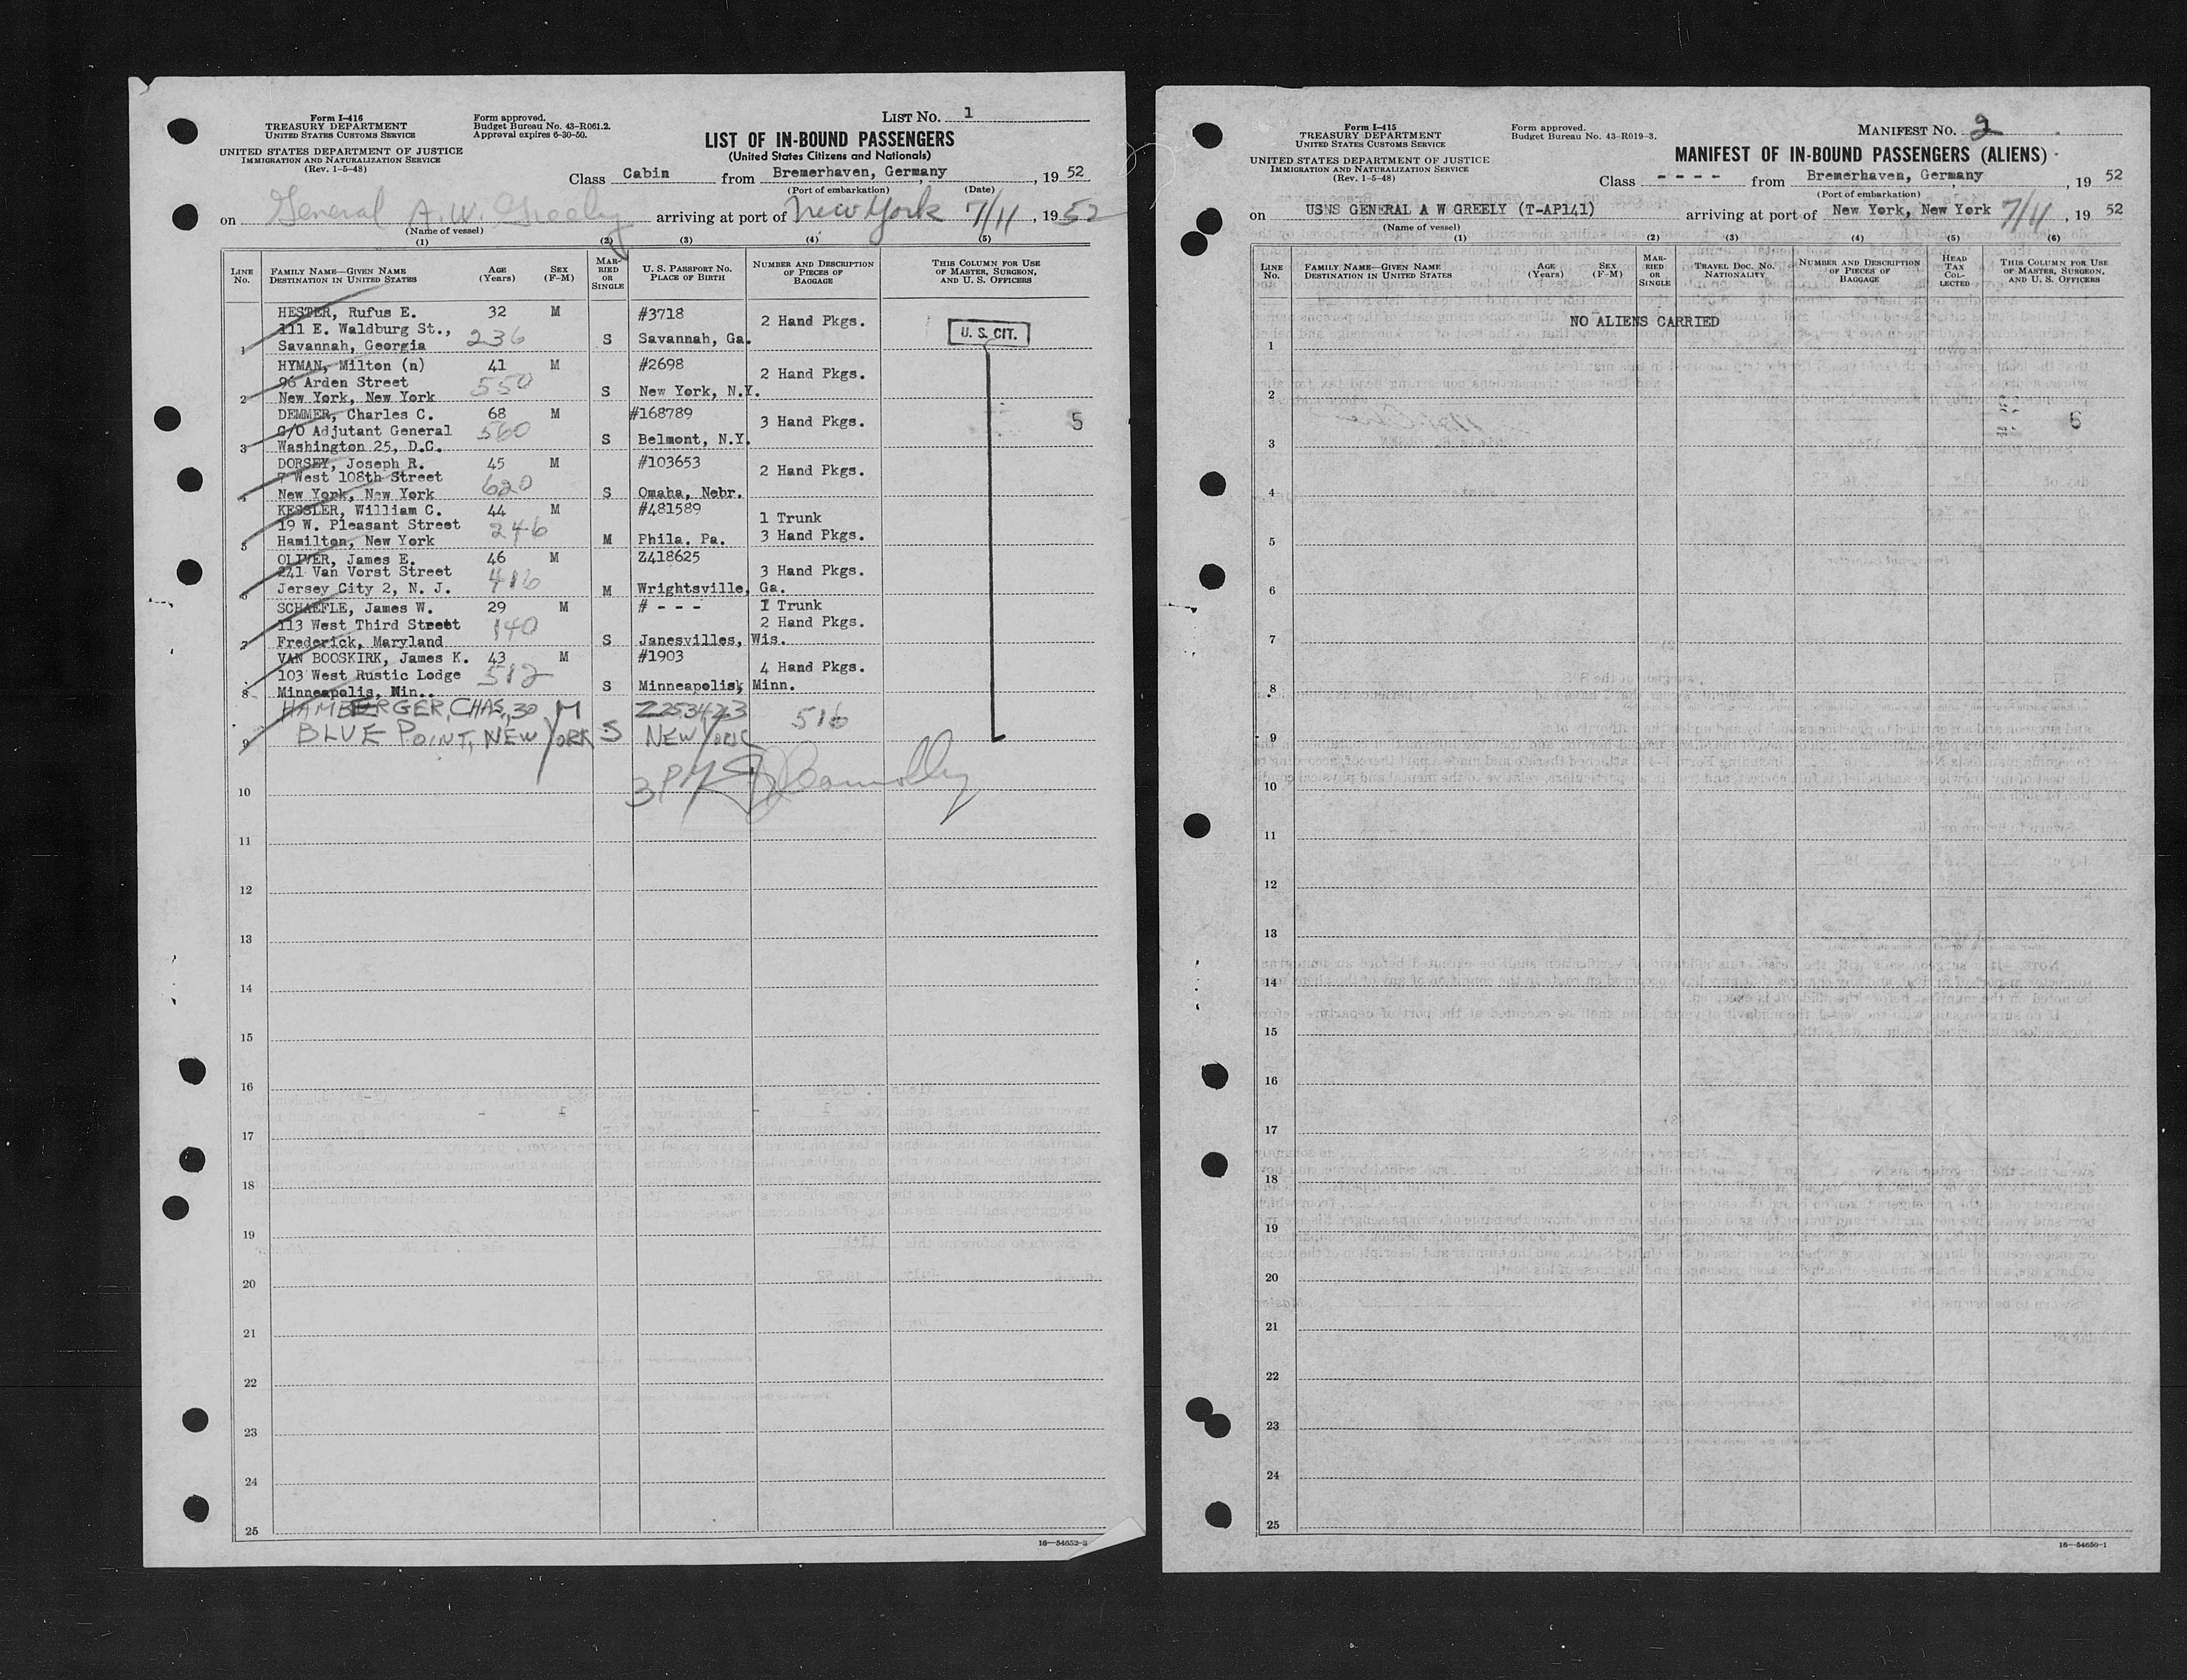 Form I-416
TREASURY DEPARTMENT
UNITED STATES CUSTOMS SERVICE
UNITED STATES DEPARTMENT OF JUSTICE
IMMIGRATION AND NATURALIZATION SERVICE
(Rev. 1-5-48)
Form approved.
Budget Bureau No. 43-R061.2.
Approval expires 6-30-50.
LIST NO. 1
LIST OF IN-BOUND PASSENGERS
(United States Citizens and Nationals)
Class Cabin from Bremerhaven, Germany, 19 52
(Port of embarkation) (Date)
on General A.W. Greely arriving at port of New York 7/11, 1952
(Name of vessel)
(1) (2) (3) (4) (5)
LINE NO. FAMILY NAME—GIVEN NAME DESTINATION IN UNITED STATES AGE (Years) SEX (F-M) MARRIED OR SINGLE U. S. PASSPORT NO. PLACE OF BIRTH NUMBER AND DESCRIPTION OF PIECES OF BAGGAGE THIS COLUMN FOR USE OF MASTER, SURGEON, AND U. S. OFFICERS
HESTER, Rufus E. 32 M #3718 2 Hand Pkgs.
111 E. Waldburg St., 236 U. S. CIT.
1 Savannah, Georgia S Savannah, Ga.
HYMAN, Milton (n) 41 M #2698 2 Hand Pkgs.
96 Arden Street 550
2 New York, New York S New York, N.Y.
DEMMER, Charles C. 68 M #168789 3 Hand Pkgs. 5
C/O Adjutant General 560
3 Washington 25, D.C. S Belmont, N.Y.
DORSEY, Joseph R. 45 M #103653 2 Hand Pkgs.
7 West 108th Street 620
4 New York, New York S Omaha, Nebr.
KESSLER, William C. 44 M #481589 1 Trunk
19 W. Pleasant Street 246 3 Hand Pkgs.
5 Hamilton, New York M Phila. Pa.
OLIVER, James E. 46 M Z418625 3 Hand Pkgs.
241 Van Vorst Street 416
6 Jersey City 2, N. J. M Wrightsville, Ga.
SCHAEFLE, James W. 29 M # - - - 1 Trunk
113 West Third Street 140 2 Hand Pkgs.
7 Frederick, Maryland S Janesvilles, Wis.
VAN BOOSKIRK, James K. 43 M #1903 4 Hand Pkgs.
103 West Rustic Lodge 512
8 Minneapolis, Min.. S Minneapolis, Minn.
HAMBERGER, CHAS, 30 M Z253423 516
9 BLUE POINT, NEW YORK S NEW YORK
10 3 PKGS
11
12
13
14
15
16
17
18
19
20
21
22
23
24
25
16—54652-3
Form I-415
TREASURY DEPARTMENT
UNITED STATES CUSTOMS SERVICE
UNITED STATES DEPARTMENT OF JUSTICE
IMMIGRATION AND NATURALIZATION SERVICE
(Rev. 1-5-48)
Form approved.
Budget Bureau No. 43-R019-3.
MANIFEST NO. 2
MANIFEST OF IN-BOUND PASSENGERS (ALIENS)
Class - - - - from Bremerhaven, Germany, 19 52
(Port of embarkation)
on USNS GENERAL A W GREELY (T-AP141) arriving at port of New York, New York 7/11, 19 52
(Name of vessel)
(1) (2) (3) (4) (5) (6)
LINE NO. FAMILY NAME—GIVEN NAME DESTINATION IN UNITED STATES AGE (Years) SEX (F-M) MARRIED OR SINGLE TRAVEL DOC. NO. NATIONALITY NUMBER AND DESCRIPTION OF PIECES OF BAGGAGE HEAD TAX COLLECTED THIS COLUMN FOR USE OF MASTER, SURGEON, AND U. S. OFFICERS
NO ALIENS CARRIED
1
2
6
3
4
5
6
7
8
9
10
11
12
13
14
15
16
17
18
19
20
21
22
23
24
25
16—54650-1